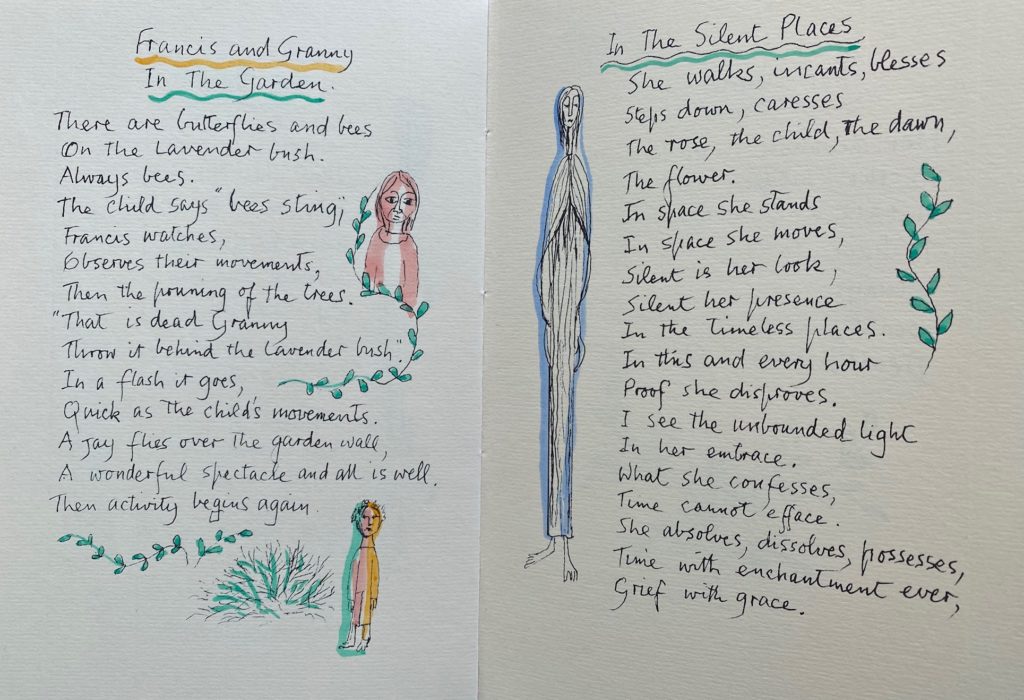 Francis and Granny
In The Garden.
There are butterflies and bees
On the Lavender bush.
Always bees.
The child says "bees sting",
Francis watches,
Observes their movements,
Then the pruning of the trees.
"That is dead Granny
Throw it behind the Lavender bush".
In a flash it goes,
Quick as the child's movements.
A jay flies over the garden wall,
A wonderful spectacle and all is well.
Then activity begins again.
In The Silent Places
She walks, incants, blesses
Steps down, caresses
The rose, the child, the dawn,
The flower.
In space she stands
In space she moves,
Silent is her look,
Silent her presence
In the Timeless places.
In this and every hour
Proof she disproves.
I see the unbounded light
In her embrace.
What she confesses,
Time cannot efface.
She absolves, dissolves, possesses,
Time with enchantment ever,
Grief with grace.